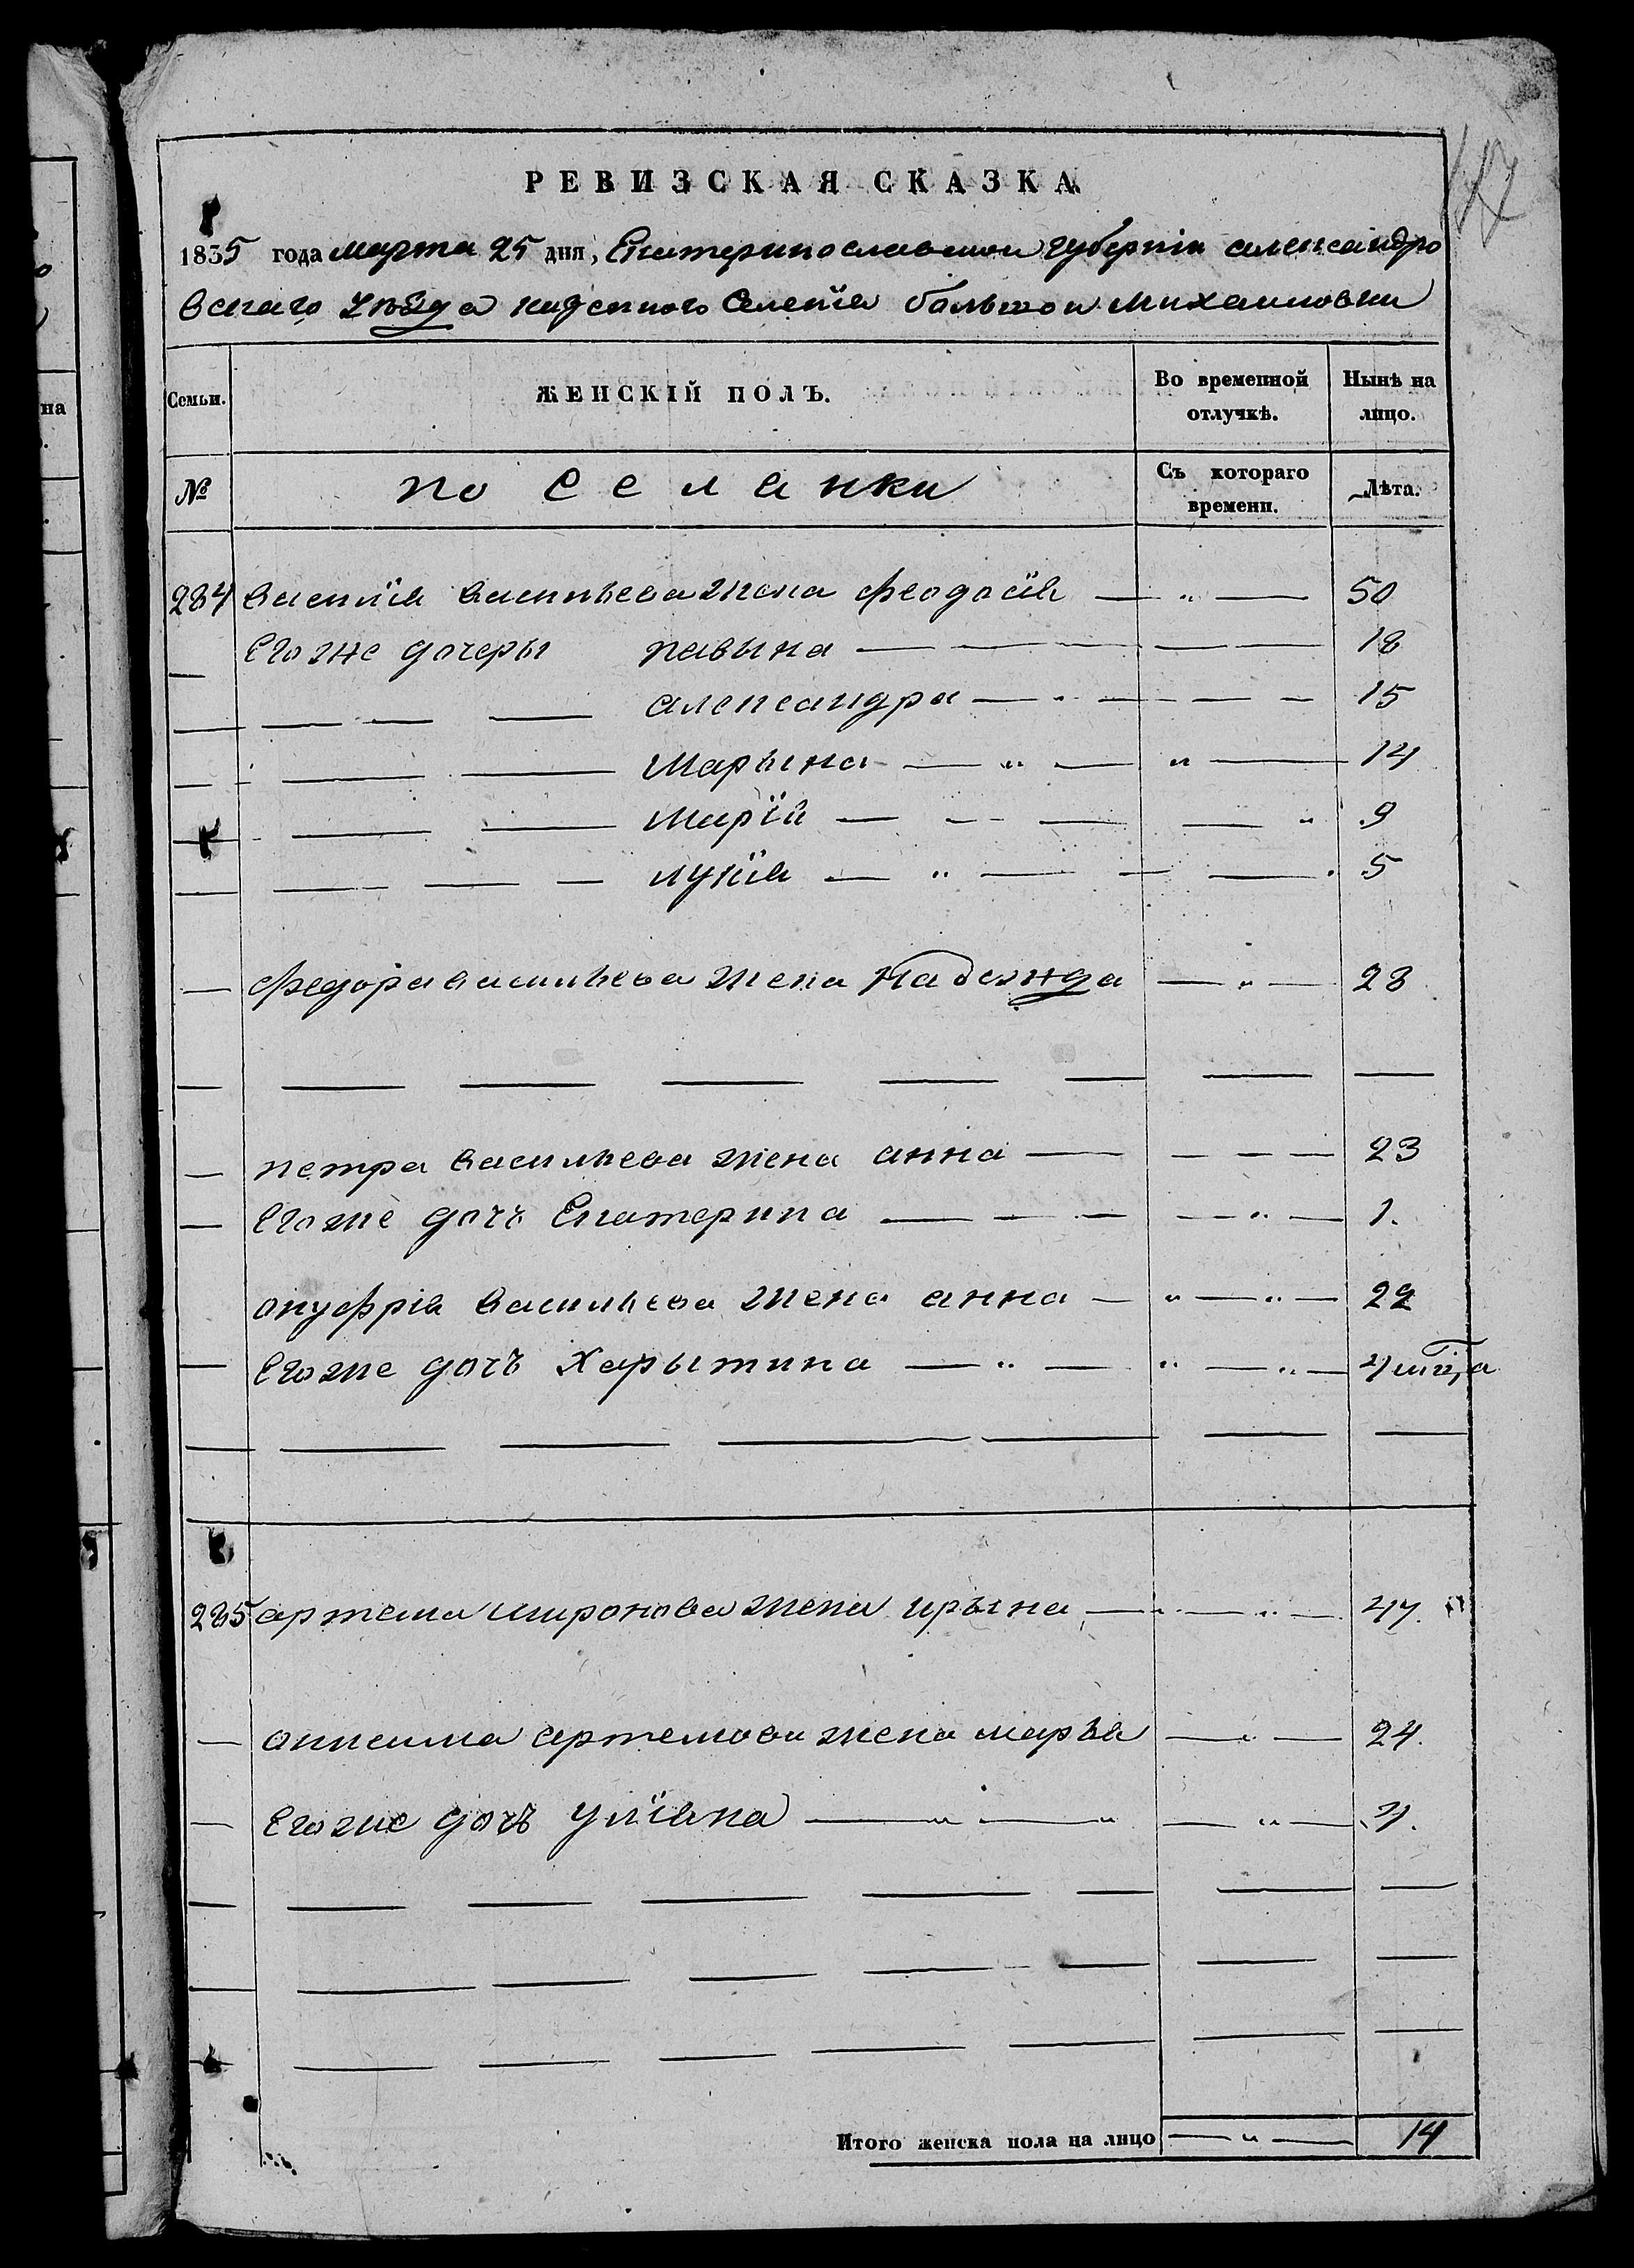 РЕВИЗСКАЯ СКАЗКА
1835 года марта 25 дня, Екатеринославской губерніи александро
вскаго уѣзда казенного Селенія большой михайловки
Семьи.
ЖЕНСКІЙ ПОЛЪ.
Во временной отлучкѣ.
Нынѣ на лицо.
№
поселянки
Съ котораго времени.
Лѣта.
284 василія васильева жена феодосія — " — 50
Его же дочеры павына 18
александра 15
марына — " — " — 14
марія — " 9
лукія — " — 5
федора васильева жена Надежда — " — 28
петра васильева жена анна 23
Его же дочъ Екатерина — " — 1.
онуфрія васильева жена анна — " — " — 22
Его же дочъ Харытина — " — " — " —
285 артема миронова жена ирына — " — " — 47.
онисима артемова жена марья — " — 24.
Его же дочъ уліяна — " — " — " — 4.
Итого женска пола на лицо — " — 14